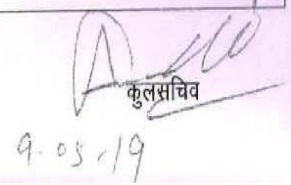 कुलसचिव
9.05.19